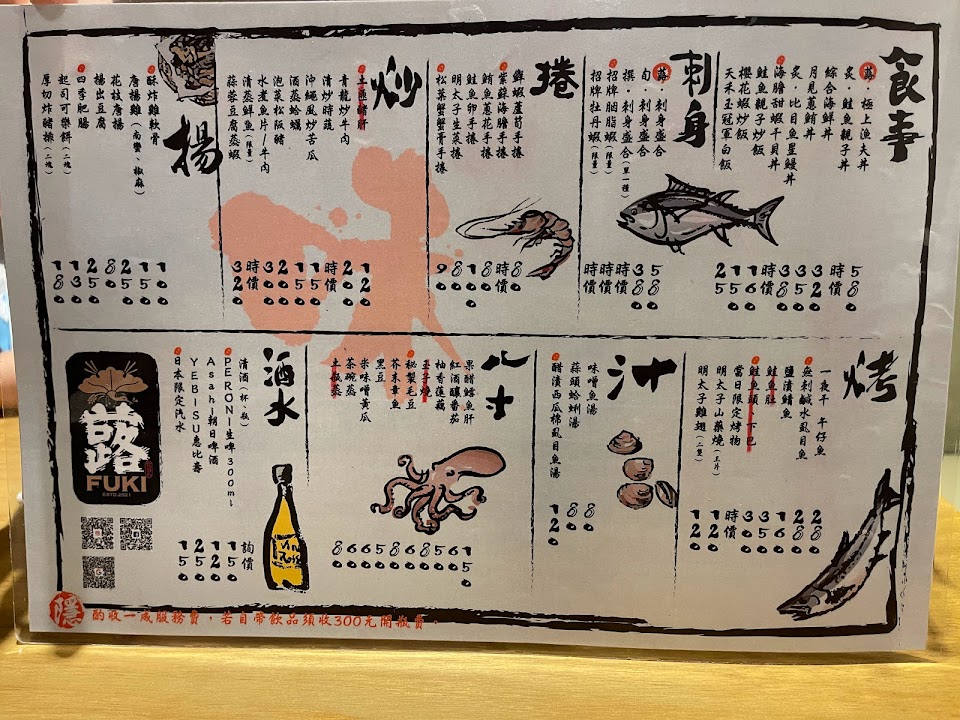 食事
蕗・極上漁夫丼 580
炙・鮭魚親子丼 時價
月見蔥鮪丼 320
綜合海鮮丼 350
炙・比目魚星鰻丼 380
海膽甜蝦干貝丼 時價
鮭魚親子炒飯 160
櫻花蝦炒飯 150
天禾玉冠軍白飯 25
刺身
蕗・刺身盛合 580
旬・刺身盛合 380
撰・刺身盛合(單一種) 時價
招牌胭脂蝦(限量) 時價
招牌牡丹蝦(限量) 時價
捲
鮮蝦蘆筍手捲 80
紫蘇海膽手捲 時價
鮪魚蔥花手捲 80
鮭魚卵手捲 180
明太子生菜捲 80
松葉蟹蟹膏手捲 90
炒
豬肝 120
青龍炒牛肉 200
清炒時蔬 時價
沖繩風炒苦瓜 150
酒蒸蛤蠣 150
泡菜松阪豬 200
水煮魚片/牛肉 300
清蒸鮮魚(限量) 時價
蒜蓉豆腐蒸蝦 320
揚
酥炸雞軟骨 110
唐揚雞(南蠻、椒麻) 150
花枝唐揚 220
揚出豆腐 80
四季肥腸 250
起司可樂餅(二塊) 130
厚切炸豬排(二塊) 180
烤
一夜干 午仔魚 280
無刺鹹水虱目魚 280
鹽漬鯖魚 160
鮭魚肚 350
鮭魚頭、下巴 300
當日限定烤物 時價
明太子山藥燒(三片) 120
明太子雞翅(二隻) 120
汁
味噌魚湯 80
蒜頭蛤蜊湯 80
醋漬西瓜棉虱目魚湯 120
八寸
果醋鱈魚肝 150
紅酒釀番茄 60
柚香蓮藕 50
玉子燒 80
秘製毛豆 60
芥末章魚 80
黑豆 50
米味噌黃瓜 60
茶碗蒸 60
土瓶蒸 80
酒水
清酒(杯、瓶) 詢價
PERONI生啤300ml 150
Asahi朝日啤酒 120
YEBISU惠比壽 250
日本限定汽水 150
蕗
FUKI
ESTD.2021
隱 酌收一成服務費，若自帶飲品須收300元開瓶費。